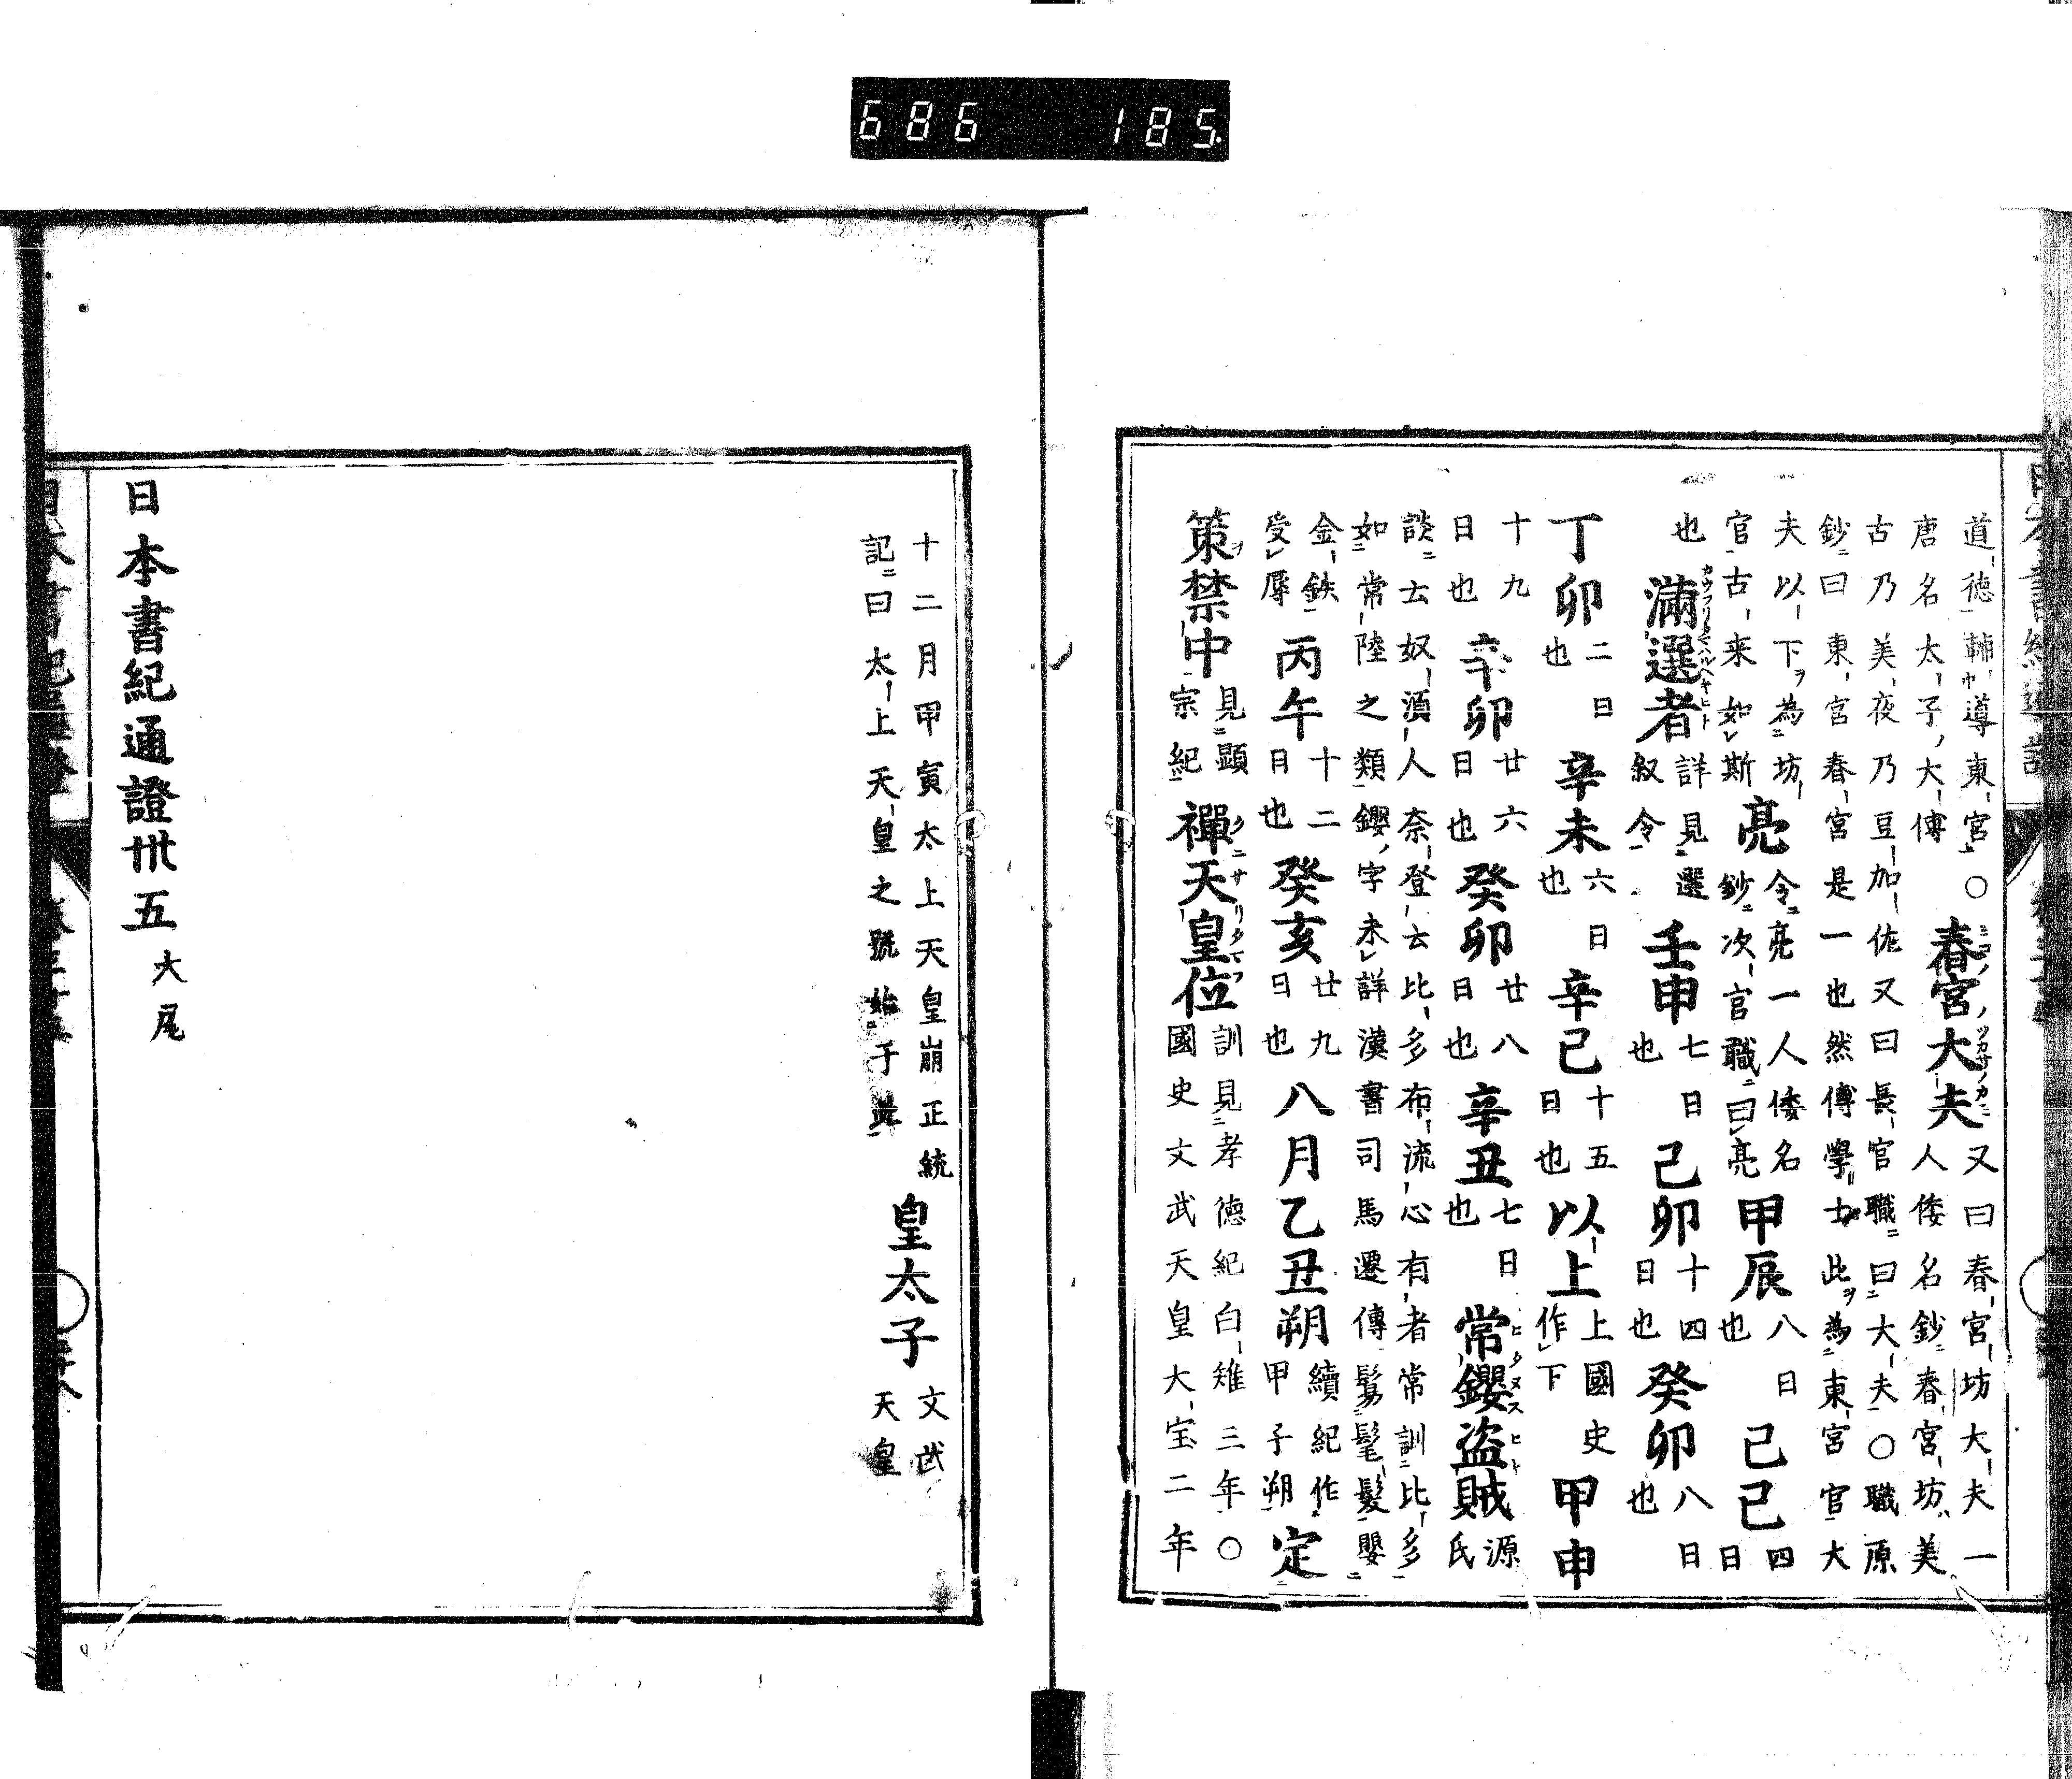 686 185
道徳輔導東宮○春宮大夫又曰春宮坊大夫一
唐名太子大傳人倭名鈔春宮坊美
古乃美夜乃豆加佐又曰長官職曰大夫○職原
鈔曰東宮春宮是一也然傳學士此為東宮官大
夫以下為坊亮令亮一人倭名甲辰八日己巳四
官古来如斯鈔次官職曰亮也日
也滿選者詳見選叙令壬申七日也己卯十四日也癸卯八日也
丁卯二日也辛未六日也辛巳十五日也以上上國史作下甲申
十九日也辛卯廿六日也癸卯廿八日也辛丑七日也常鑽盜賊源氏
談云奴湏人奈登云比多布流心有者常訓比多
如常陸之類鑽字未詳漢書司馬遷傳鬄髦髮嬰
金鉄受辱丙午十二日也癸亥廿九日也八月乙丑朔續紀作甲子朔定
策禁中見顯宗紀禪天皇位訓見孝徳紀白雉三年○
國史文武天皇大宝二年
十二月甲寅太上天皇崩正統
記曰太上天皇之號始于此
皇太子文武天皇
日本書紀通證卅五大尾